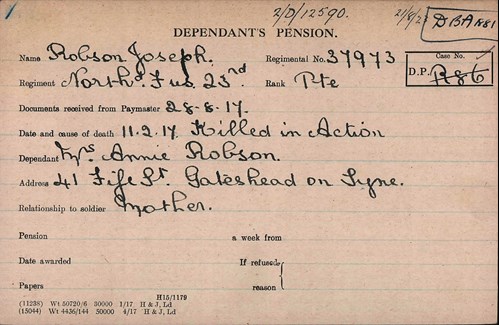 2/D/12590. 21/8/2
DBA R81
DEPENDANT'S PENSION.
Name Robson Joseph. Regimental No. 37973
Case No.
D.P. R86
Regiment North'd Fus. 23rd Rank Pte
Documents received from Paymaster 28-8-17.
Date and cause of death 11.2.17. Killed in Action
Dependant Mrs Annie Robson.
Address 41 Fife St. Gateshead on Tyne.
Relationship to soldier Mother.
Pension a week from
Date awarded If refused
Papers reason
H15/1179
(11238) Wt 50720/6 30000 1/17 H & J, Ld
(15044) Wt 4436/144 50000 4/17 H & J, Ld